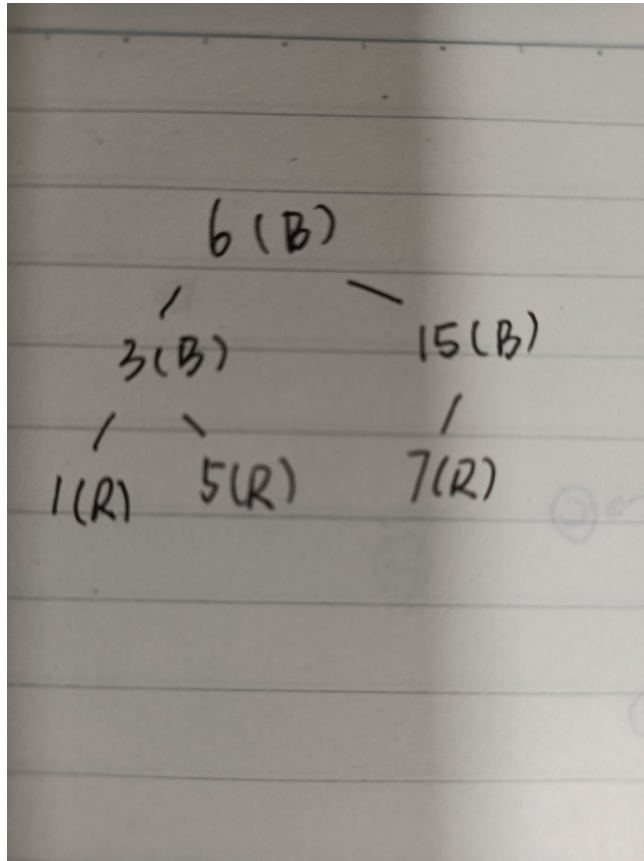 6(B)
3(B) 15(B)
1(R) 5(R) 7(R)